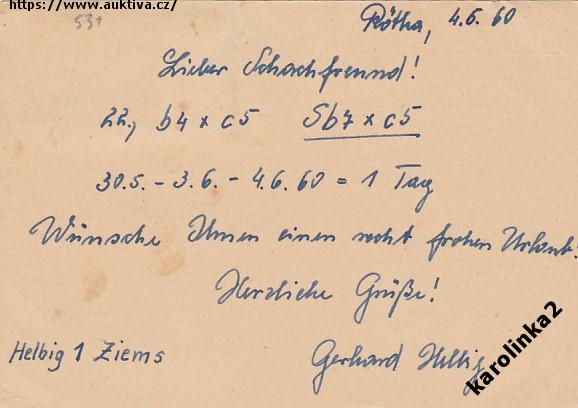 https://www.auktiva.cz/
531
Rötha, 4.6.60
Lieber Schachfreund!
22., b4 x c5 Sb7 x c5
30.5. - 3.6. - 4.6.60 = 1 Tag
Wünsche Ihnen einen recht frohen Urlaub!
Herzliche Grüße!
Helbig 1 Ziems
Gerhard Helbig
karolinka2